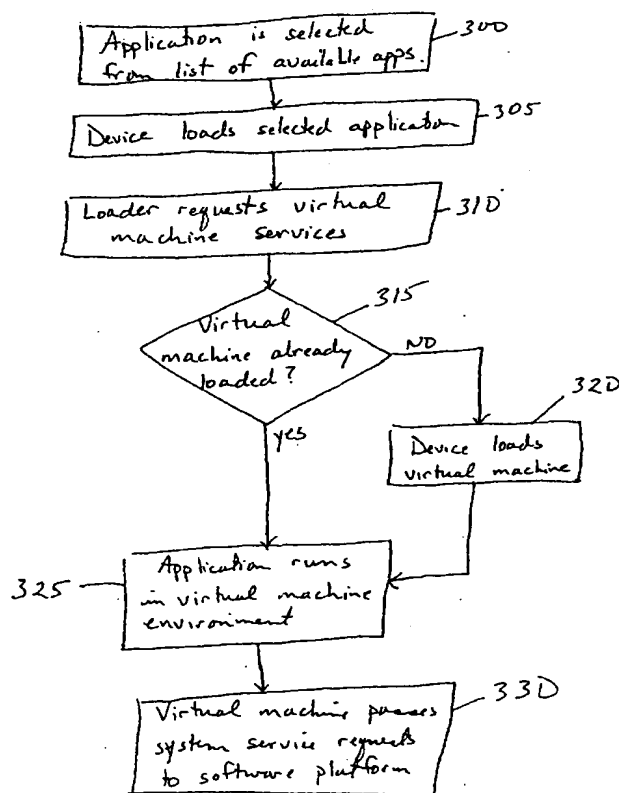 Application is selected
from list of available apps.
300
Device loads selected application
305
Loader requests virtual
machine services
310
Virtual
machine already
loaded?
315
NO
yes
Device loads
virtual machine
320
Application runs
in virtual machine
environment
325
Virtual machine passes
system service requests
to software platform
330